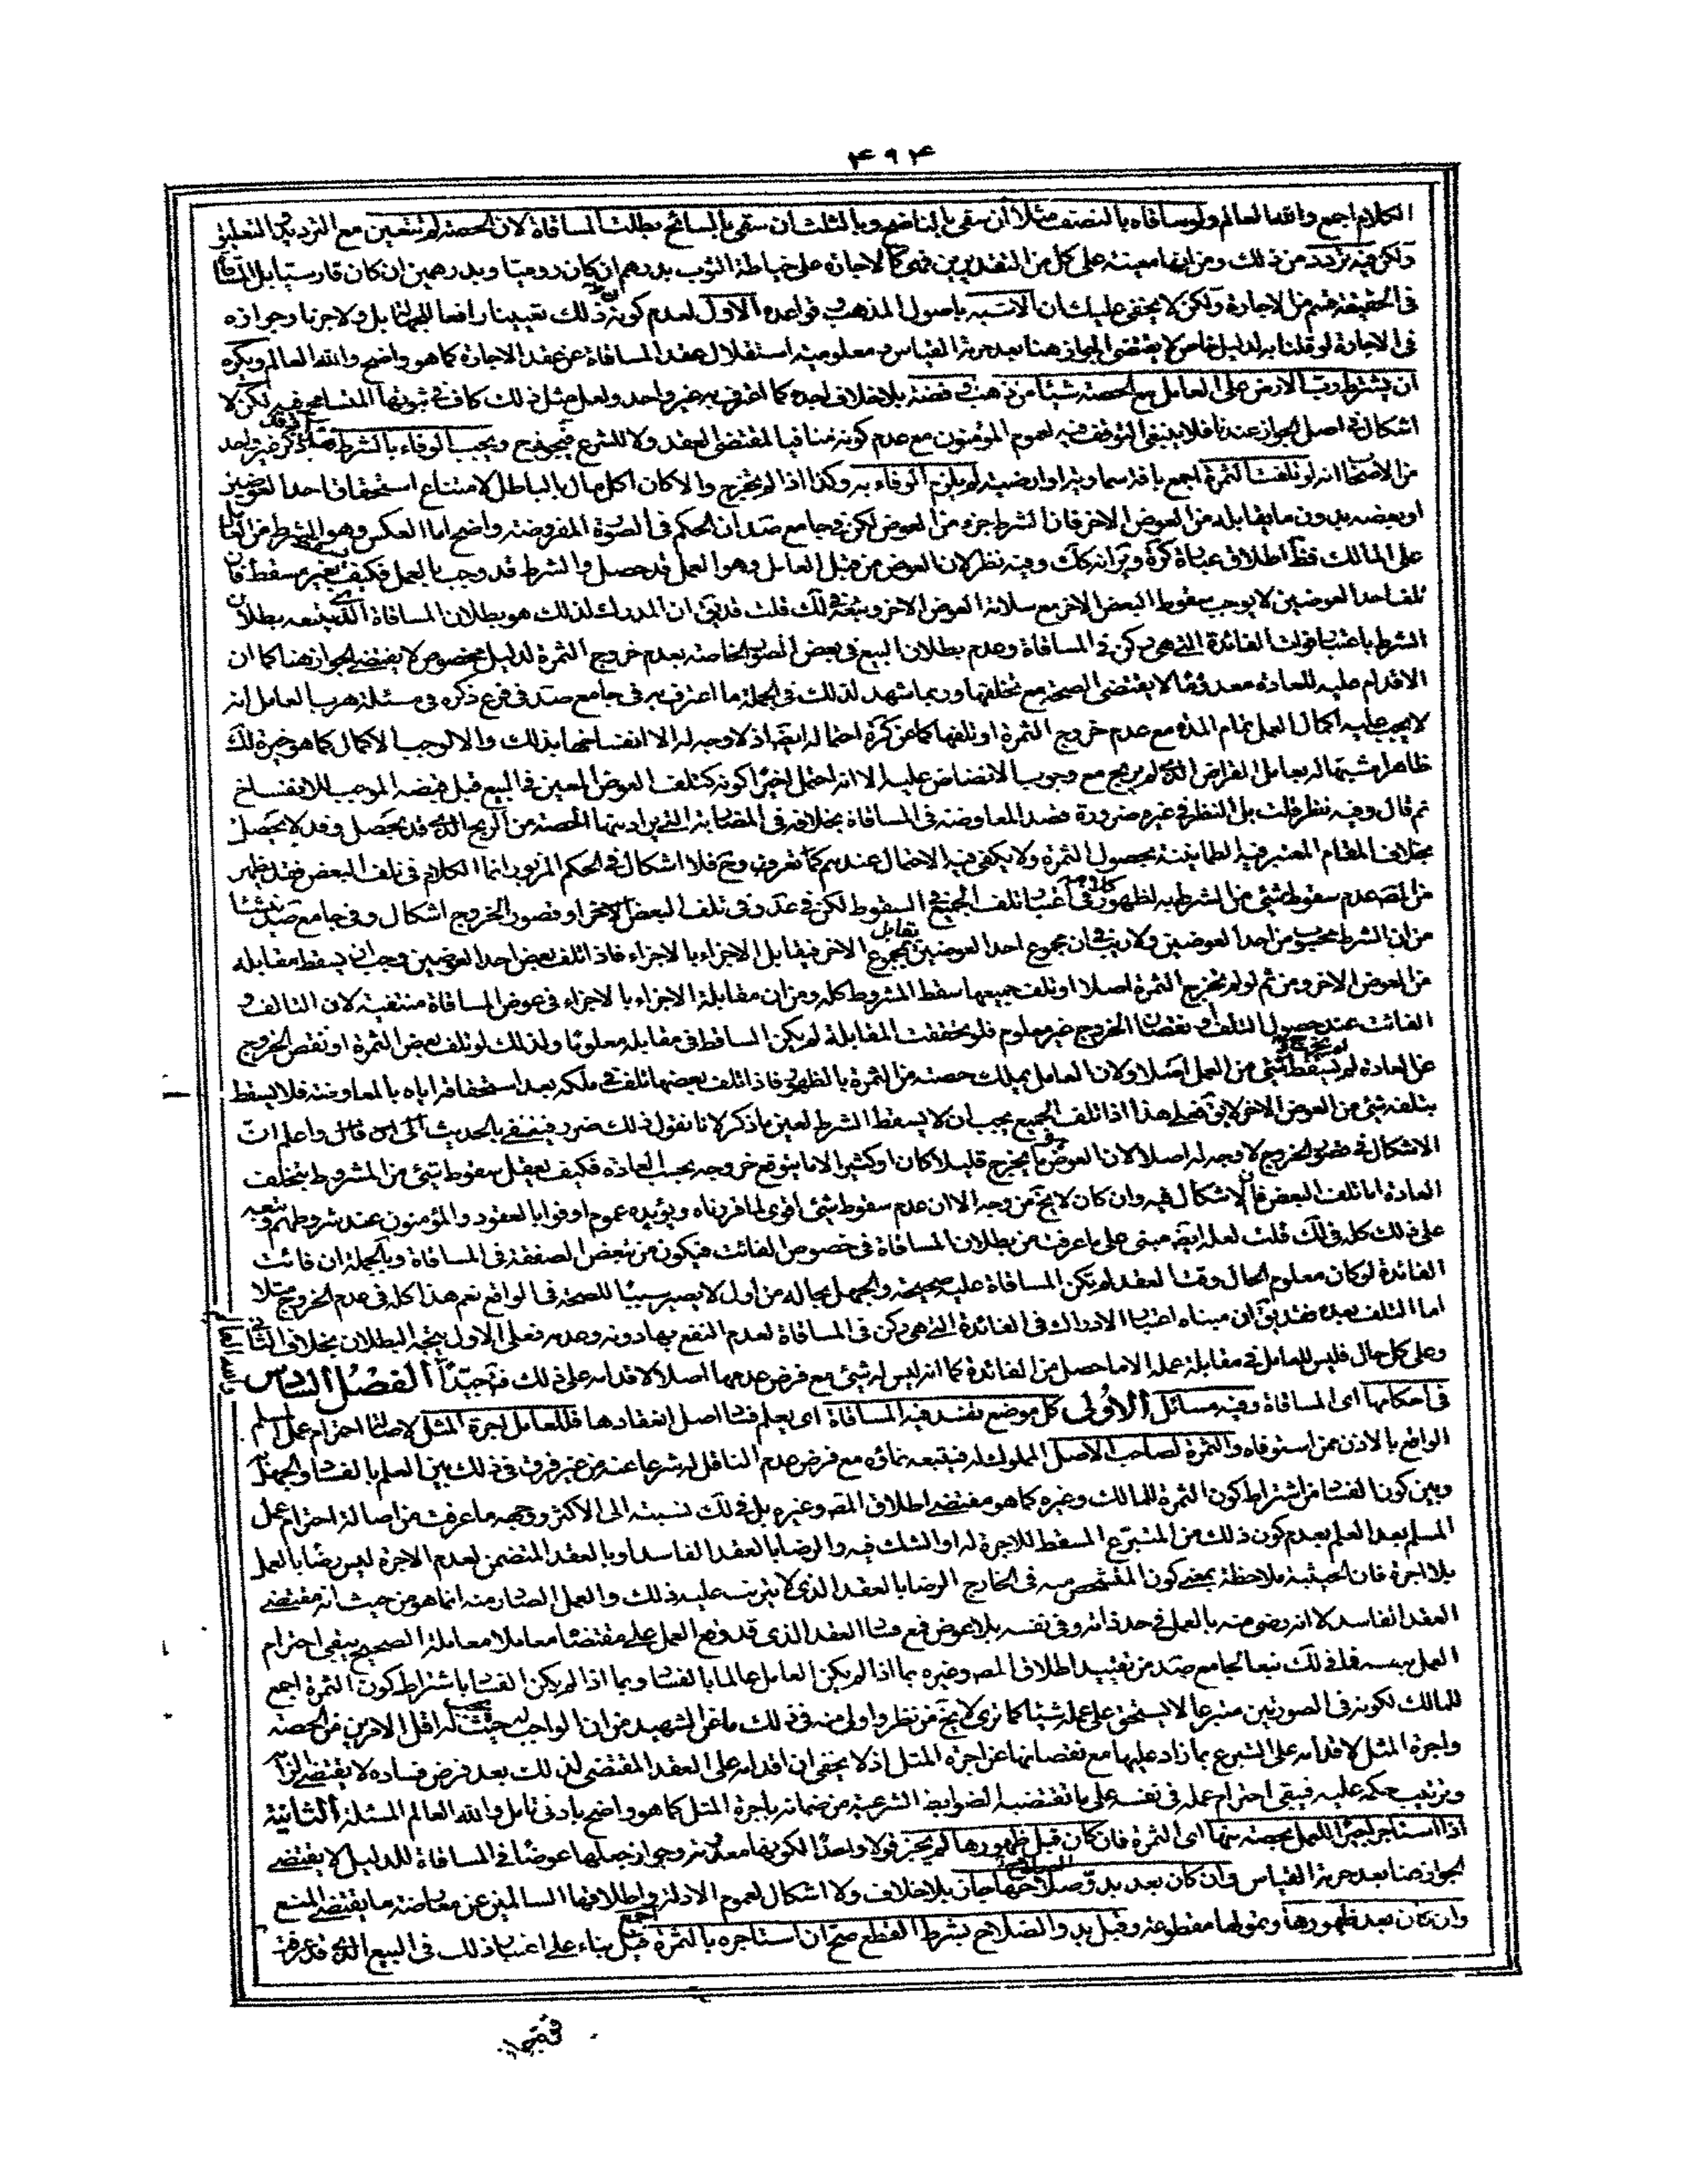 ۴۹۴
الكلام اجمع والله العالم ولو ساقاه بالنصف مثلا ان سقى بالناضح وبالثلث ان سقى بالسائح بطلت المساقاة لان الحصة لم تتعين مع الترديد بين التعليق
ولكن فيه تردد من ذلك ومن انها معينة على كل من التقديرين فهى كالاجارة على خياطة الثوب بدرهم ان كان روميا وبدرهمين ان كان فارسيا بل المساقاة
فى الحقيقة قسم من الاجارة ولكن لا يخفى عليك ان الاشبه باصول المذهب وقواعده الاول لعدم كون ذلك تعيينا رافعا للجهالة بل ولا جزما وجوازه
فى الاجارة لو قلنا به لدليل خاص لا يقتضى الجواز هنا بعد حرمة القياس ومعلومية استقلال عقد المساقاة عن عقد الاجارة كما هو واضح والله العالم ويكره
ان يشترط رب الارض على العامل مع الحصة شيئا من ذهب او فضة بلا خلاف اجده كما اعترف به غير واحد ولعل مثل ذلك كاف فى ثبوتها المتسامح فيه لكن لا
اشكال فى اصل الجواز عندنا فلا ينبغى التوقف فيه لعموم المؤمنون مع عدم كونه منافيا لمقتضى العقد ولا للشرع فيجوز ح ويجب الوفاء بالشرط ذكر غير واحد
من الاصحاب انه لو تلفت الثمرة اجمع بافة سماوية او ارضية لم يلزم الوفاء به وكذا اذا لم تخرج والا كان اكل مال بالباطل لامتناع استحقاق احد العوضين
او بعضه بدون ما يقابله من العوض الاخر فان الشرط جزء من العوض لكن فى جامع صد ان الحكم فى الصورة المفروضة واضح اما العكس وهو الشرط من العامل
على المالك فظ اطلاق عبارة كرة وير انه كك وفيه نظر لان العوض من قبل العامل وهو العمل قد حصل والشرط قد وجب بالعمل فكيف بغير مسقط فان
تلف احد العوضين لا يوجب سقوط البعض الاخر مع سلامة العوض الاخر وتبعه فى لك قلت قد يق ان المدرك لذلك هو بطلان المساقاة الذى يتبعه بطلان
الشرط باعتبار فوات الفائدة التى هى ركن فى المساقاة وعدم بطلان البيع فى بعض الصور الخاصة بعدم خروج الثمرة لدليل مخصوص لا يقتضى الجواز هنا كما ان
الاقدام عليه للعادة لا يقتضى الصحة مع تخلفها وربما شهد لذلك فى الجملة ما اعترف به فى جامع صد فى فرع ذكره فى مسئلة هرب العامل انه
لا يجب عليه اكمال العمل تمام المدة مع عدم خروج الثمرة او تلفها كما عن كرة احتماله ايضا اذ لا وجه له الا انفساخها بذلك والا لوجب الاكمال كما هو خيرة لك
ظاهرا مشبها له بعامل القراض الذى لم يربح مع وجوب الانضاض عليه الا انه احتمل اخيرا كونه كتلف العوض المعين فى البيع قبل قبضه الموجب للانفساخ
ثم قال وفيه نظر قلت بل النظر فى غيره ضرورة قصد المعاوضة فى المساقاة بخلافه فى المضاربة التى يراد بها الحصة من الربح الذى قد يحصل وقد لا يحصل
بخلاف المقام المعتبر فيه الطمانينة بحصول الثمرة ولا يكفى فيه الاحتمال عندهم كما تعرف وح فلا اشكال فى الحكم المزبور انما الكلام فى تلف البعض فقد
من المص عدم سقوط شئ من الشرط به لظهور كلامه فى اعتبار تلف الجميع فى السقوط لكن فى عد وفى تلف البعض الاخر او قصور الخروج اشكال وفى جامع صد ينشا
من ان الشرط محسوب من احد العوضين ولا ريب فى ان مجموع احد العوضين يقابل بمجموع الاخر فيقابل الاجزاء بالاجزاء فاذا تلف بعض احد العوضين وجب ان يسقط مقابله
من العوض الاخر ومن ثم لو لم تخرج الثمرة اصلا او تلف جميعها سقط المشروط كله ومن ان مقابلة الاجزاء بالاجزاء فى عوض المساقاة منتفية لان التالف و
الفائت عند حصول التلف ونقصان الخروج غير معلوم فلو تحققت المقابلة لم يكن الساقط فى مقابله معلوما ولذلك لو تلف بعض الثمرة او نقص الخروج
عن العادة لم يسقط شئ من العمل اصلا ولان العامل يملك حصته من الثمرة بالظهور فاذا تلف بعضها تلف فى ملكه بعد استحقاقه اياه بالمعاوضة فلا يسقط
بتلفه شئ من العوض الاخر لا يق فعلى هذا اذا تلف الجميع يجب ان لا يسقط الشرط لعين ما ذكر لانا نقول ذلك ضرر فينتفى بالحديث الى ان قال واعلم ان
الاشكال فى قصور الخروج لا وجه له اصلا لان العوض هو ما يخرج قليلا كان او كثيرا لا ما يتوقع خروجه بحسب العادة فكيف يعقل سقوط شئ من المشروط بتخلف
العادة اما تلف البعض فان الاشكال فيه وان كان لا يخ من وجه الا ان عدم سقوط شئ اقوى لما قررناه ويؤيده عموم اوفوا بالعقود والمؤمنون عند شروطهم وتبعه
على ذلك كله فى لك قلت لعله ايضا مبنى على ما عرفت من بطلان المساقاة فى خصوص الفائت فيكون من تبعض الصفقة فى المساقاة وبالجملة ان فائت
الفائدة لو كان معلوم الحال وقت العقد لم تكن المساقاة عليه صحيحة والجهل بحاله من اول لا يصير سببا للصحة فى الواقع نعم هذا كله فى عدم الخروج مثلا
اما التلف بعده فقد يق ان مبناه اعتبار الادراك فى الفائدة التى هى ركن فى المساقاة لعدم النفع بها دونه وعدمه فعلى الاول يتجه البطلان بخلاف الثانى
وعلى كل حال فليس للعامل فى مقابلة عمله الا ما حصل من الفائدة كما انه ليس له شئ مع فرض عدمها اصلا لاقدامه على ذلك فت جيدا الفصل السادس
فى احكامها اى المساقاة وفيه مسائل الاولى كل موضع تفسد فيه المساقاة اى يعلم فساد اصل انعقادها فللعامل اجرة المثل لاصالة احترام عمل المسلم
الواقع بالاذن ممن استوفاه والثمرة لصاحب الاصل المملوك له فيتبعه نماؤه مع فرض عدم الناقل له شرعا عنه من غير فرق فى ذلك بين العلم بالفساد والجهل
وبين كون الفساد من اشتراط كون الثمرة للمالك وغيره كما هو مقتضى اطلاق المص وغيره بل فى لك نسبته الى الاكثر ووجهه ما عرفت من اصالة احترام عمل
المسلم بعد العلم بعدم كون ذلك من المتبرع المسقط للاجرة له او الشك فيه والرضا بالعقد الفاسد او بالعقد المتضمن لعدم الاجرة ليس رضا بالعمل
بلا اجرة فان الحيثية ملاحظة بمعنى كون المتشخص منه فى الخارج الرضا بالعقد الذى لا يترتب عليه ذلك والعمل الصادر منه انما هو من حيث انه مقتضى
العقد الفاسد لا انه رضى منه بالعمل فى حد ذاته وفى نفسه بلا عوض فمع فساد العقد الذى قد وقع العمل على مقتضاه معاملا معاملة الصحيح يبقى احترام
العمل بنفسه فما فى لك تبعا لجامع صد من تقييد اطلاق المص وغيره بما اذا لم يكن العامل عالما بالفساد وبما اذا لم يكن الفساد باشتراط كون الثمرة اجمع
للمالك لكونه فى الصورتين متبرعا لا يستحق على عمله شيئا كما ترى لا يخ من نظر واولى منه فى ذلك ما عن الشهيد من ان الواجب له حيث يجب اقل الامرين من الحصة
واجرة المثل لاقدامه على التبرع بما زاد عليها مع نقصانها عن اجرة المثل اذ لا يخفى ان اقدامه على العقد المقتضى لذلك بعد فرض فساده لا يقتضى
وترتيب حكمه عليه فيبقى احترام عمله فى نفسه على ما تقتضيه الضوابط الشرعية من ضمانه باجرة المثل كما هو واضح بادنى تامل والله العالم المسئلة الثانية
اذا استاجر اجيرا للعمل بحصة منها اى الثمرة فان كان قبل ظهورها لم يجز قولا واحدا لكونها معدومة وجواز جعلها عوضا فى المساقاة للدليل لا يقتضى
الجواز هنا بعد حرمة القياس وان كان بعد بدو صلاحها جاز بلا خلاف ولا اشكال لعموم الادلة واطلاقها السالمين عن معارضة ما يقتضى المنع
وان كان بعد ظهورها وتمولها مقطوعة وقبل بدو الصلاح بشرط القطع صح ان استاجره بالثمرة اجمع قيل بناء على اعتبار ذلك فى البيع الذى قد عرفت